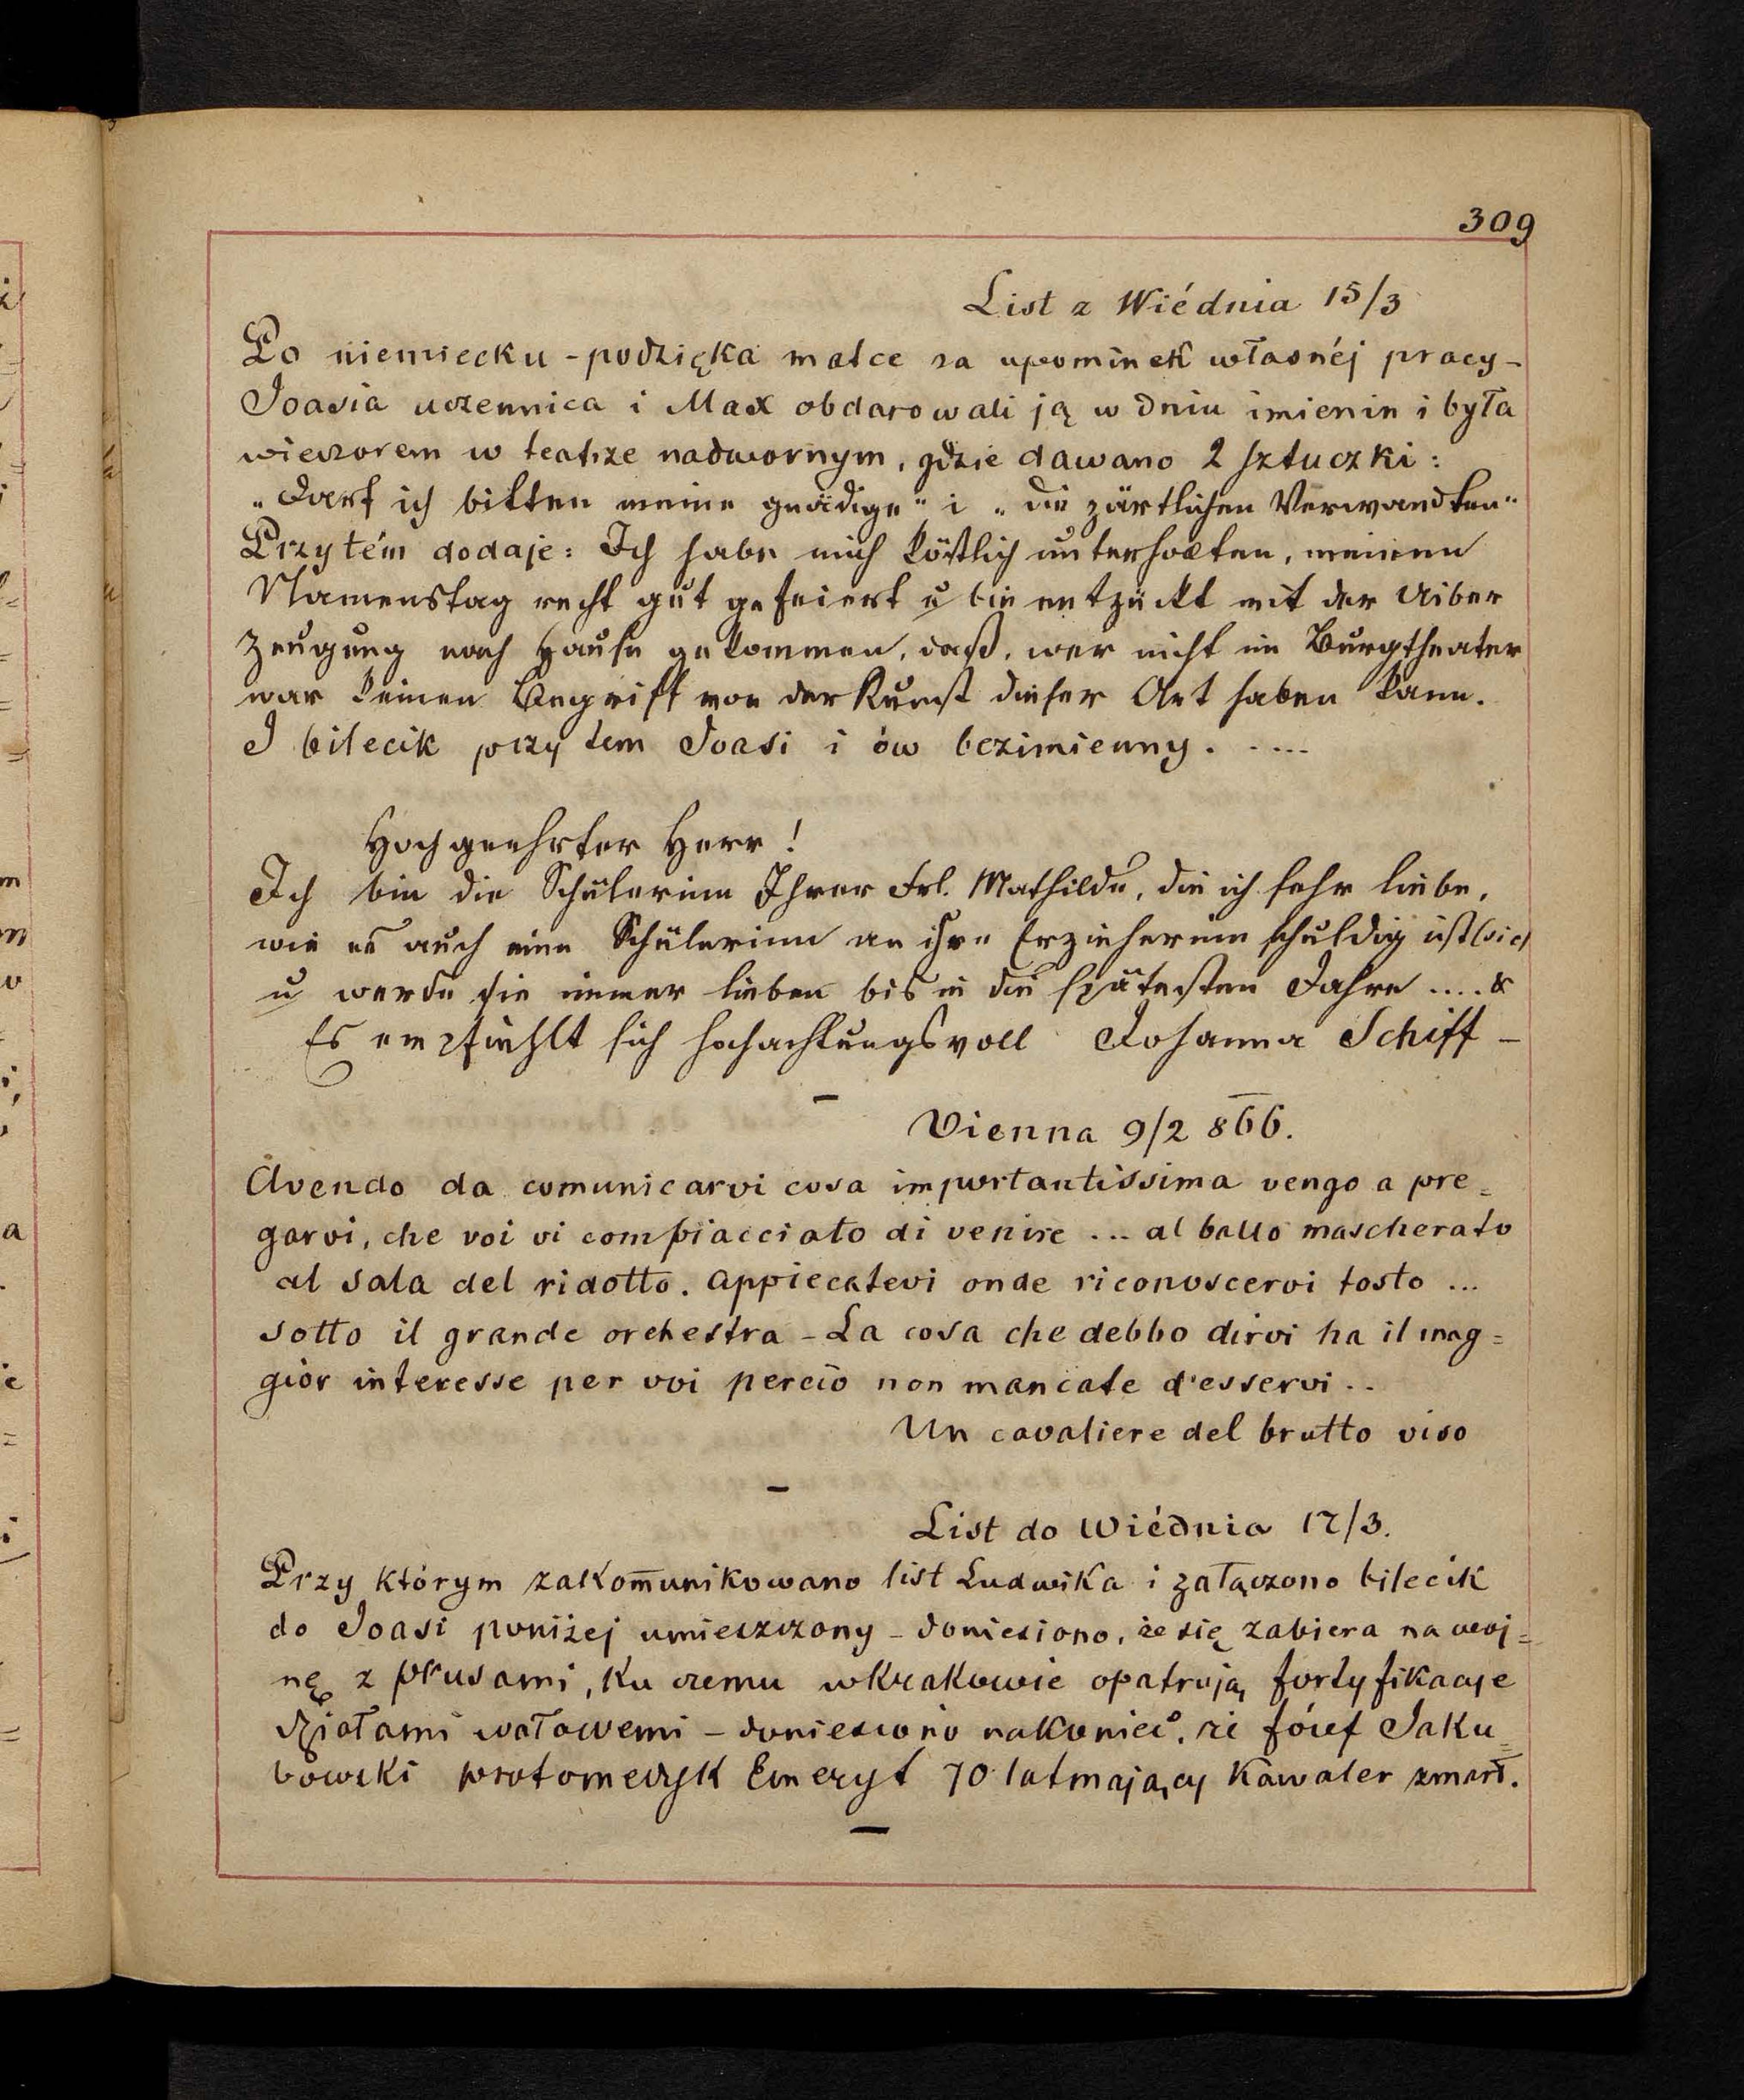 309
List z Wiédnia 15/3
Po niemiecku - podzięka matce za upominek własnéj pracy -
Joasia uczennica i Max obdarowali ją w dniu imienin i była
wieczorem w teatrze nadwornym, gdzie dawano 2 sztuczki:
„Darf ich bitten meine gnädige" i „die zärtlichen Verwandten"
Przytém dodaje: Ich habe mich köstlich unterhalten, meinen
Namenstag recht gut gefeiert u bin entzückt mit der Uiber
zeugung nach Hause gekommen, daß, wer nicht im Burgtheater
war keinen Begriff von der Kunst dieser Art haben kann.
I bilecik przytem Joasi i ów bezimienny. . ...
Hochgeehrter Herr!
Ich bin die Schülerinn Ihrer Frl. Mathilde, die ich sehr liebe,
wie es auch eine Schülerinn an ihre Erzieherinn schuldig ist (sic)
u werde sie immer lieben bis in die spätesten Jahre .... &
Es empfiehlt sich hochachtungsvoll Johanna Schiff -
Vienna 9/2 866.
Avendo da comunicarvi cosa importantissima vengo a pre=
garvi, che voi vi compiacciato di venire ... al ballo mascherato
al sala del ridotto. appiecatevi onde riconoscervi tosto ...
sotto il grande orchestra - La cosa che debbo dirvi ha il mag=
gior interesse per voi perciò non mancate d'esservi..
Un cavaliere del brutto viso
List do Wiédnia 17/3.
Przy którym zakom̅unikowano list Ludwika i załączono bilecik
do Joasi poniżej umieszczony - doniesiono, że się zabiera na woj=
nę z prusami, ku czemu w Krakowie opatrują fortyfikacje
działami wałowemi - doniesiono nakoniec, że józef Jaku=
bowski protomedyk Emeryt 70 lat mający Kawaler zmarł.